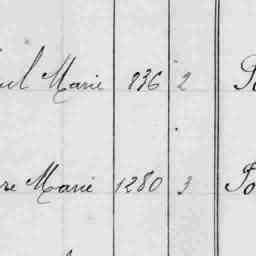 Marie 836 2
re Marie 1280 3 Po